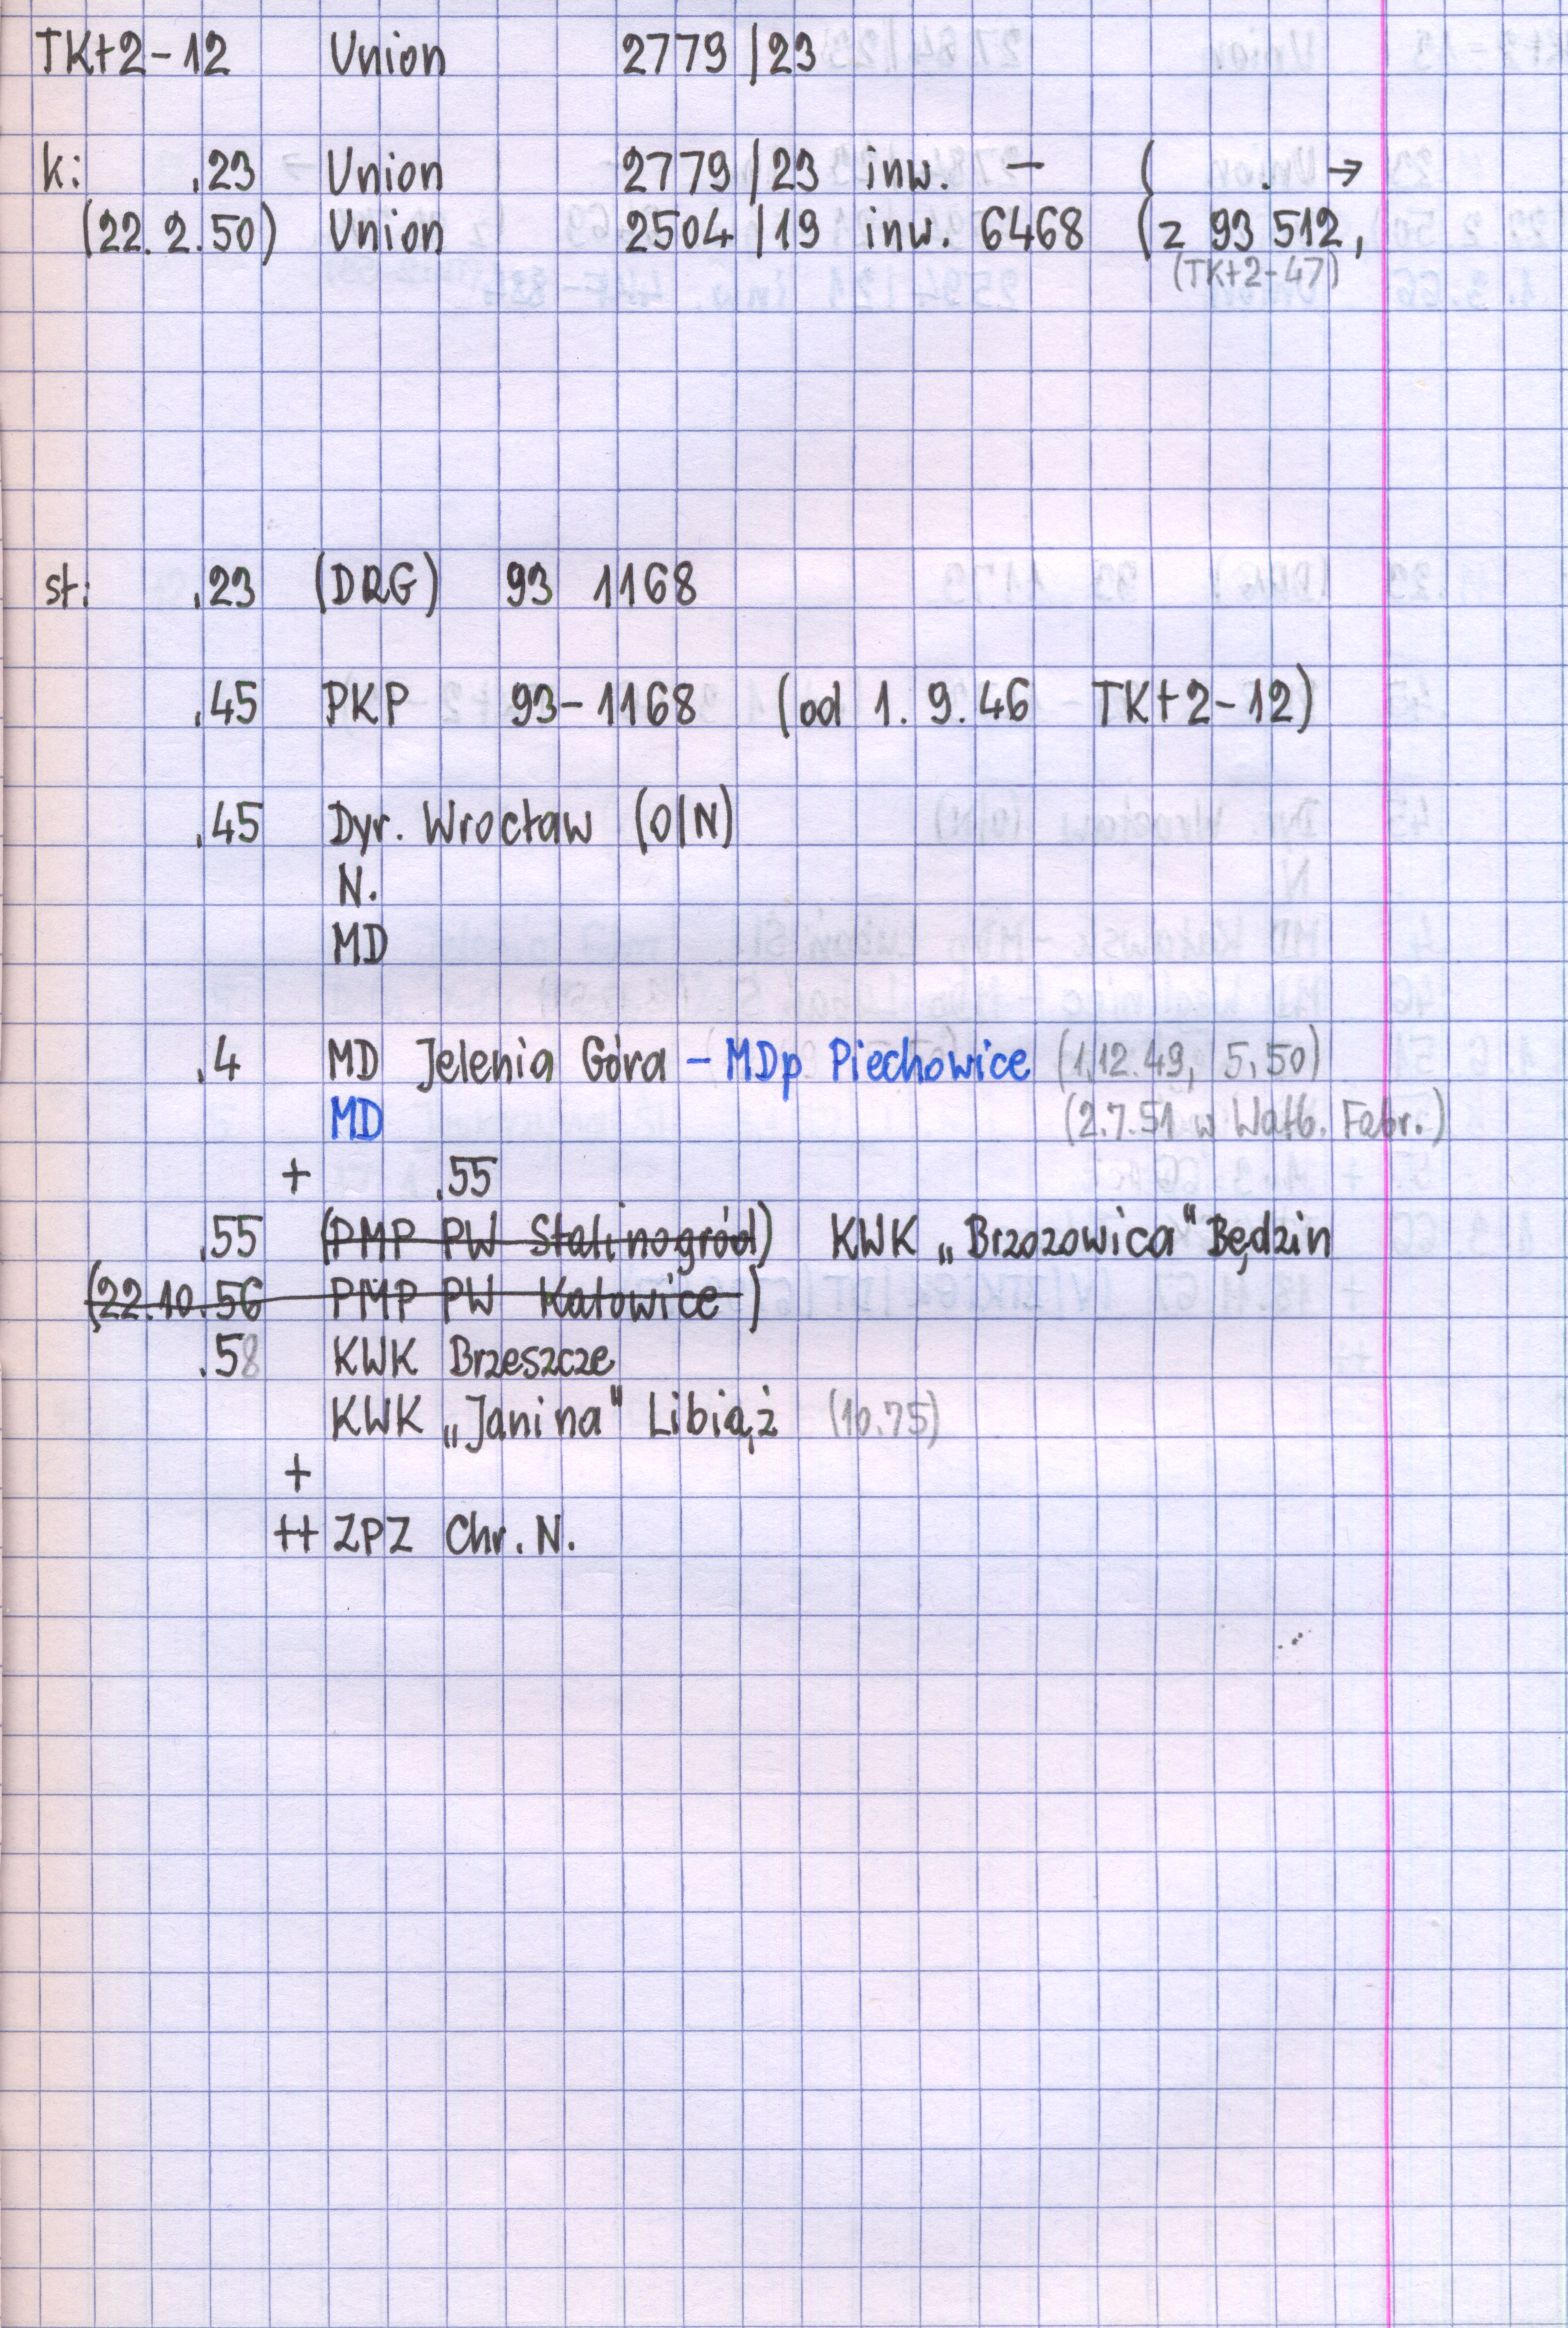 TKt2-12 Union 2779/23
k: .23 Union 2779/23 inw. – ( . →
(22.2.50) Union 2504/19 inw. 6468 (z 93 512,
(TKt2-47)
st: .23 (DRG) 93 1168
.45 PKP 93-1168 (od 1.9.46 TKt2-12)
.45 Dyr. Wrocław (O/N)
N.
MD
.4 MD Jelenia Góra – MDp Piechowice (1.12.49, 5.50)
MD (2.7.51 w Wałb. Fabr.)
+ .55
.55 (PMP PW Stalinogród) KWK „Brzozowica" Będzin
(22.10.56 PMP PW Katowice)
.58 KWK Brzeszcze
KWK „Janina" Libiąż (10.75)
+
++ ZPZ Chr. N.